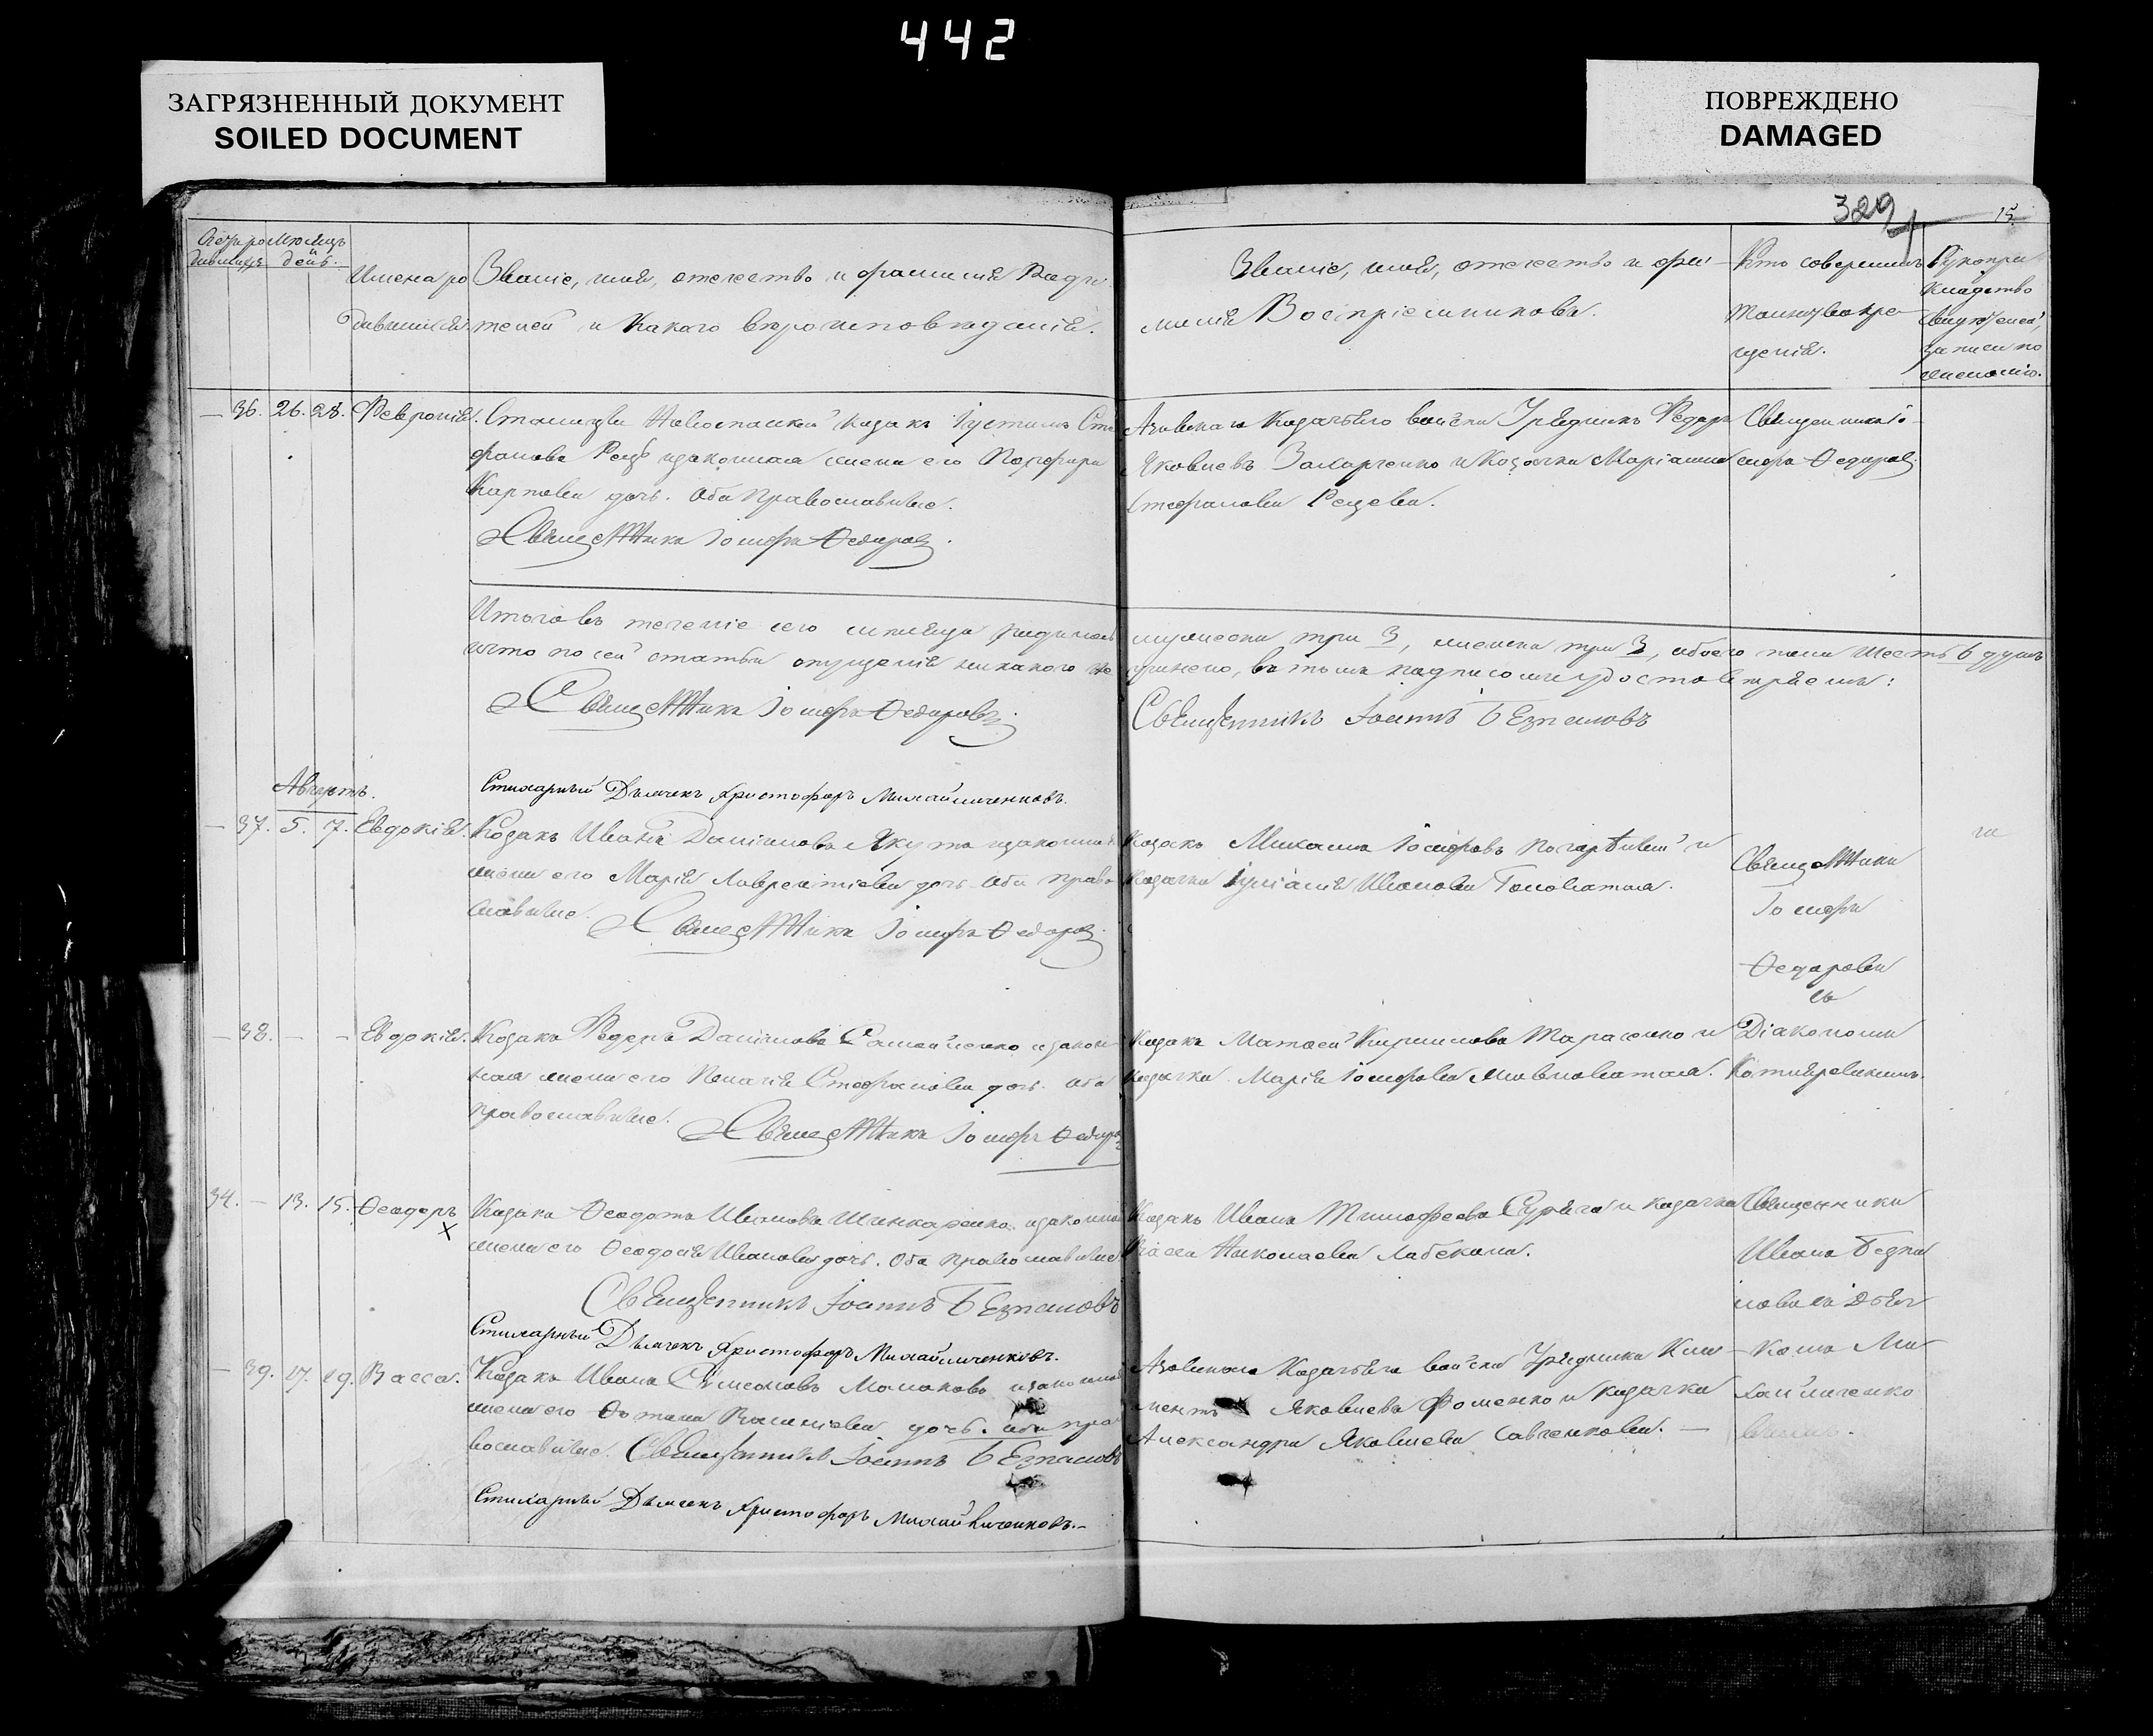 442
ЗАГРЯЗНЕННЫЙ ДОКУМЕНТ
SOILED DOCUMENT
ПОВРЕЖДЕНО
DAMAGED
329
15.
Имена ро
дившихся
Званіе, имя, отчество и фамилія Роди
телей и какого вѣроисповѣданія.
Званіе, имя, отчество и фа-
милія Воспріемниковъ.
Кто совершилъ
таинство кре-
щенія.
Рукопри
кладство
свидѣтелей
записи по
желанію.
36. 26. 28. Февронія.
Станицы Новоспаской козакъ Іустинъ Сте
фановъ Рец и законная жена его Порфира
Карпова дочь. Оба православные.
Священникъ Іосифъ Ѳедоровъ.
Азовскаго Козачьяго войска Урядникъ Федоръ
Яковлевъ Захарченко и Козачка Маріанна
Стефанова Рецева.
Священникъ Іо-
сифъ Ѳедоровъ
Итого въ теченіе сего мѣсяца родилось
мужеска три 3, женска три 3, обоего пола шесть 6 душъ
что по сей статьи опущенія никакого не
учинено, въ томъ подписомъ удостовѣряемъ:
Священникъ Іосифъ Ѳедоровъ
Священникъ Іоаннъ Безпаловъ
Стихарный Дьячекъ Христофоръ Михайличенковъ.
Августъ.
37. 5. 7. Евдокія.
Козакъ Иванъ Даніиловъ Якута и законная
жена его Марія Лаврентіева дочь. Оба право
славные. Священникъ Іосифъ Ѳедоровъ
Козакъ Михаилъ Іосифовъ Погорѣлый и
Козачка Іуліанія Иванова Головатая.
Священникъ
Іосифъ
Ѳедоровъ
съ
38. - - Евдокія.
Козакъ Федоръ Даніиловъ Самойленко и закон-
ная жена его Пелагія Стефанова дочь. Оба
православные. Священникъ Іосифъ Ѳедоровъ
Козакъ Матвей Кирилловъ Тарасенко и
Козачка Марія Іосифова
Діакономъ
Котляревскимъ.
34. - 13. 15. Ѳеодоръ
x
Козакъ Ѳеодотъ Ивановъ Шинкаренко и законная
жена его Ѳеодосія Иванова дочь. Оба православные
Священникъ Іоаннъ Безпаловъ
Стихарный Дьячекъ Христофоръ Михайличенковъ.
Козакъ Иванъ Тимофеевъ и козачка
Васса Николаева
Священникъ
Иванъ Безпа
ловъ съ Дьяч
- 39. 17. 19. Васса.
Козакъ Иванъ Симеоновъ и законная
жена его Васильева дочь. Оба пра
вославные. Священникъ Іоаннъ Безпаловъ
Стихарный Дьячекъ Христофоръ Михайличенковъ.
Азовскаго Козачьяго войска Урядникъ Кли-
ментъ Яковлевъ Фоменко и козачка
Александра Яковлева Савченкова.
комъ Ми
хайличенко
вымъ.